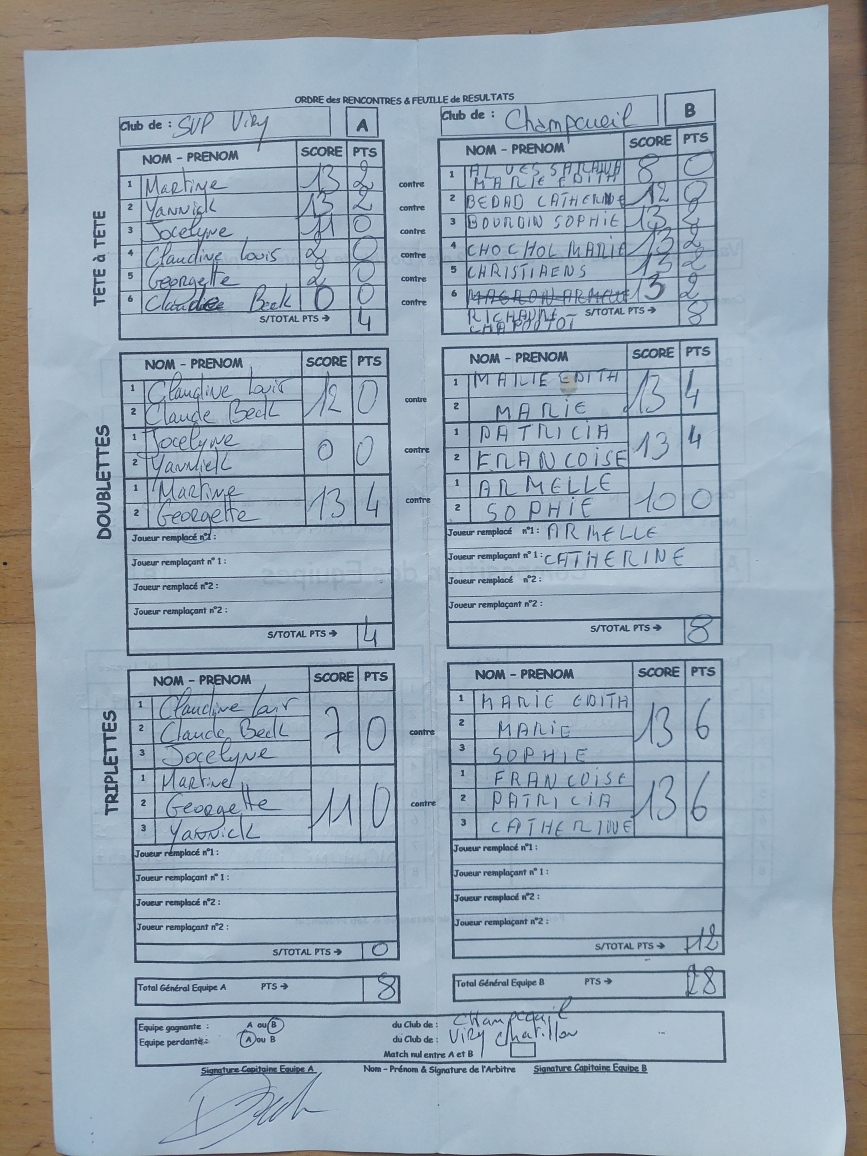 ORDRE des RENCONTRES & FEUILLE de RESULTATS
Club de : SUP Viry A
Club de : Champcueil B
TETE à TETE
NOM - PRENOM SCORE PTS
1 Martine 13 2 contre
2 Yannick 13 2 contre
3 Jocelyne 11 0 contre
4 Claudine Louis 2 0 contre
5 Georgette 2 0 contre
6 Claude Beck 0 0 contre
S/TOTAL PTS → 4
NOM - PRENOM SCORE PTS
1 ALVES SARAIVA 8 0
MARIE EDITH
2 BEDAD CATHERINE 12 0
3 BOURDIN SOPHIE 13 2
4 CHOCHOL MARIE 13 2
5 CHRISTIAENS 13 2
6 13 2
RICHAUME S/TOTAL PTS → 8
CHAPOUTOT
DOUBLETTES
NOM - PRENOM SCORE PTS
1 Claudine Louis 12 0 contre
2 Claude Beck
1 Jocelyne 0 0 contre
2 Yannick
1 Martine 13 4 contre
2 Georgette
Joueur remplacé n°1 :
Joueur remplaçant n° 1 :
Joueur remplacé n°2 :
Joueur remplaçant n°2 :
S/TOTAL PTS → 4
NOM - PRENOM SCORE PTS
1 MARIE EDITH 13 4
2 MARIE
1 PATRICIA 13 4
2 FRANCOISE
1 ARMELLE 10 0
2 SOPHIE
Joueur remplacé n°1 : ARMELLE
Joueur remplaçant n° 1 : CATHERINE
Joueur remplacé n°2 :
Joueur remplaçant n°2 :
S/TOTAL PTS → 8
TRIPLETTES
NOM - PRENOM SCORE PTS
1 Claudine Louis 7 0 contre
2 Claude Beck
3 Jocelyne
1 Martine 11 0 contre
2 Georgette
3 Yannick
Joueur remplacé n°1 :
Joueur remplaçant n° 1 :
Joueur remplacé n°2 :
Joueur remplaçant n°2 :
S/TOTAL PTS → 0
NOM - PRENOM SCORE PTS
1 MARIE EDITH 13 6
2 MARIE
3 SOPHIE
1 FRANCOISE 13 6
2 PATRICIA
3 CATHERINE
Joueur remplacé n°1 :
Joueur remplaçant n° 1 :
Joueur remplacé n°2 :
Joueur remplaçant n°2 :
S/TOTAL PTS → 12
Total Général Equipe A PTS → 8
Total Général Equipe B PTS → 28
Equipe gagnante : A ou B du Club de : Champcueil
Equipe perdante : A ou B du Club de : Viry Chatillon
Match nul entre A et B
Signature Capitaine Equipe A Nom - Prénom & Signature de l'Arbitre Signature Capitaine Equipe B